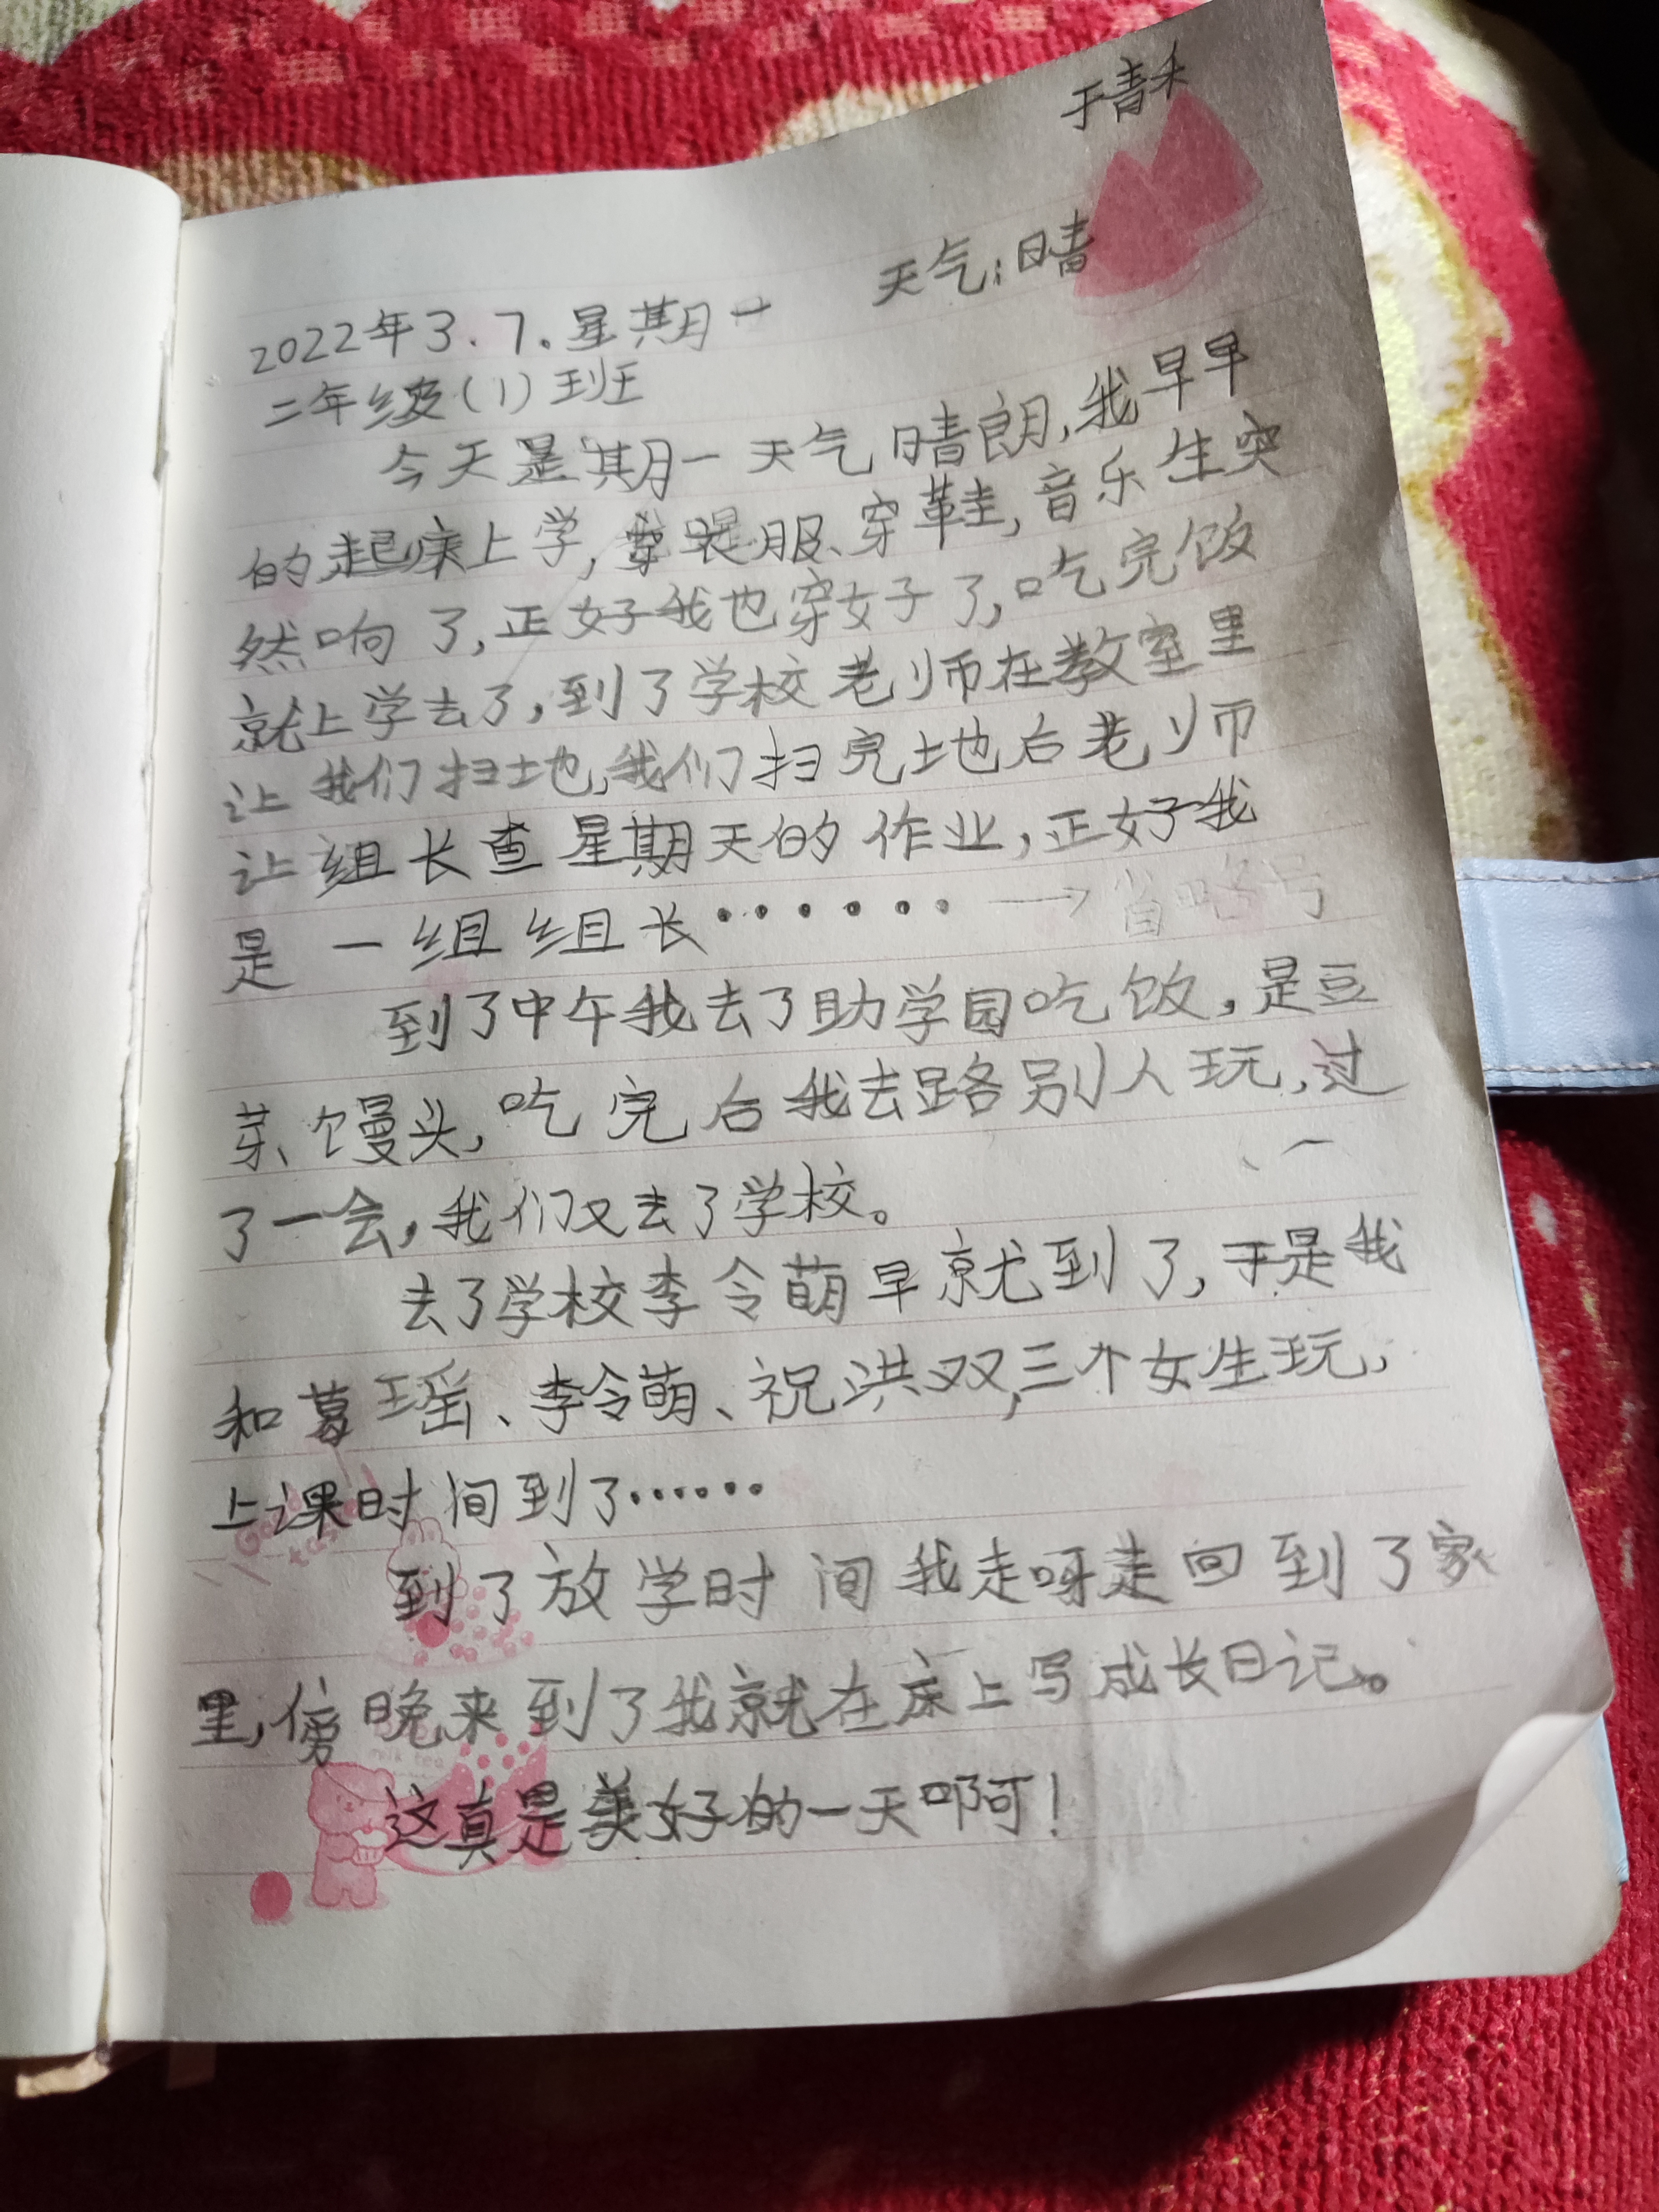 于青禾
天气:晴
2022年3.7.星期一
二年级(1)班
今天是期一天气晴朗,我早早
的起床上学,穿服、穿鞋,音乐生突
然响了,正好我也穿好了,吃完饭
就上学去了,到了学校老师在教室里
让我们扫地,我们扫完地后老师
让组长查星期天的作业,正好我
是一组组长······→省略号
到了中午我去了助学园吃饭,是豆
芽、馒头,吃完后我去路别人玩,过
了一会,我们又去了学校。
去了学校李令萌早就到了,于是我
和葛瑶、李令萌、祝洪双,三个女生玩,
上课时间到了······
到了放学时间我走呀走回到了家
里,傍晚来到了我就在床上写成长日记。
这真是美好的一天啊!